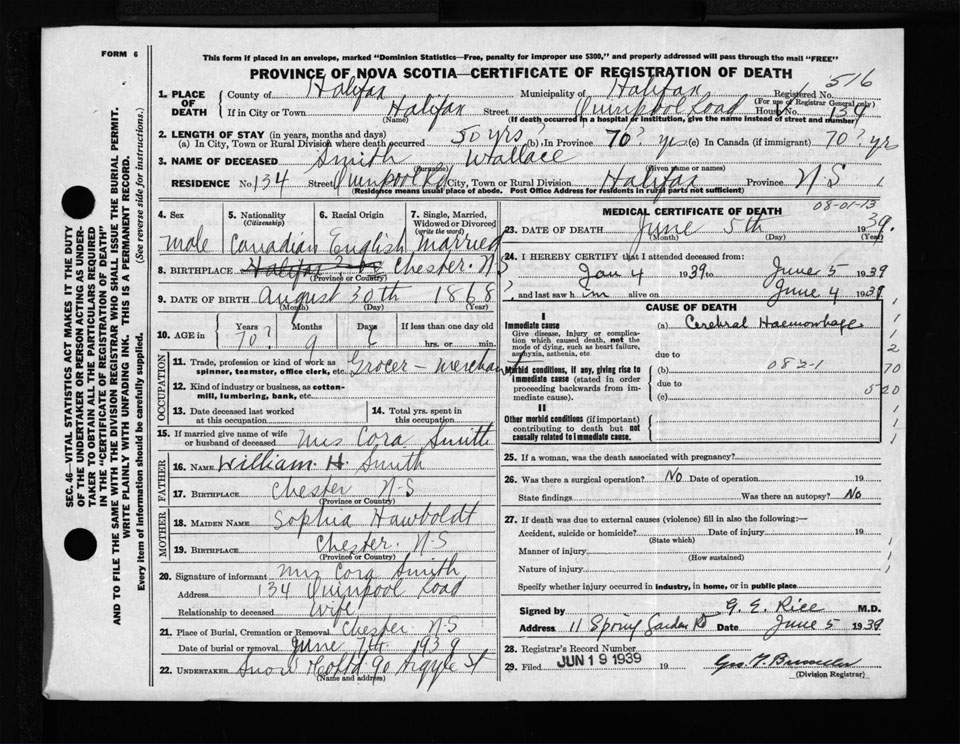 FORM 6
This form if placed in an envelope, marked "Dominion Statistics—Free, penalty for improper use $300," and properly addressed will pass through the mail "FREE"
PROVINCE OF NOVA SCOTIA—CERTIFICATE OF REGISTRATION OF DEATH
516
1. PLACE OF DEATH
County of Halifax Municipality of Halifax Registered No.
(For use of Registrar General only)
If in City or Town Halifax Street Quinpool Road House No. 134
(Name) (If death occurred in a hospital or institution, give the name instead of street and number)
2. LENGTH OF STAY (in years, months and days)
(a) In City, Town or Rural Division where death occurred 50 yrs? (b) In Province 70? yrs (c) In Canada (if immigrant) 70? yrs
3. NAME OF DECEASED Smith Wallace
(Surname) (Given name or names)
RESIDENCE No. 134 Street Quinpool Rd City, Town or Rural Division Halifax Province N S
(Residence means usual place of abode. Post Office Address for residents in rural parts not sufficient)
4. Sex 5. Nationality (Citizenship) 6. Racial Origin 7. Single, Married, Widowed or Divorced (write the word)
male Canadian English Married
8. BIRTHPLACE Halifax Chester. N S
(Province or Country)
9. DATE OF BIRTH August 30th 1868?
(Month) (Day) (Year)
10. AGE in Years Months Days If less than one day old
70? 9 6 hrs. or min.
OCCUPATION
11. Trade, profession or kind of work as spinner, teamster, office clerk, etc. Grocer - Merchant
12. Kind of industry or business, as cotton-mill, lumbering, bank, etc.
13. Date deceased last worked at this occupation
14. Total yrs. spent in this occupation
15. If married give name of wife or husband of deceased Mrs Cora Smith
FATHER
16. NAME William. H. Smith
17. BIRTHPLACE Chester N-S
(Province or Country)
MOTHER
18. MAIDEN NAME Sophia Hawboldt
19. BIRTHPLACE Chester. N-S
(Province or Country)
20. Signature of informant Mrs Cora Smith
Address 134 Quinpool Road
Relationship to deceased Wife
21. Place of Burial, Cremation or Removal Chester N-S
Date of burial or removal June 7th 1939
22. UNDERTAKER Snow & Co Ltd 90 Argyle St
(Name and address)
MEDICAL CERTIFICATE OF DEATH
08-01-13
23. DATE OF DEATH June 5th 1939.
(Month) (Day) (Year)
24. I HEREBY CERTIFY that I attended deceased from:
Jan 4 1939 to June 5 1939
and last saw him alive on June 4 1939
CAUSE OF DEATH
I
Immediate cause (a) Cerebral Haemorrhage
Give disease, injury or complication which caused death, not the mode of dying, such as heart failure, asphyxia, asthenia, etc.
due to
Morbid conditions, if any, giving rise to immediate cause (stated in order proceeding backwards from immediate cause).
(b) 082-1
due to
(c)
II
Other morbid conditions (if important) contributing to death but not causally related to immediate cause.
1
1
2
70
520
1
1
1
25. If a woman, was the death associated with pregnancy?
26. Was there a surgical operation? No Date of operation 19
State findings Was there an autopsy? No
27. If death was due to external causes (violence) fill in also the following:—
Accident, suicide or homicide? Date of injury 19
(State which)
Manner of injury
(How sustained)
Nature of injury
Specify whether injury occurred in industry, in home, or in public place
Signed by G. E. Rice M.D.
Address 11 Spring Garden Rd Date June 5 1939.
28. Registrar's Record Number
29. Filed JUN 19 1939 19
(Division Registrar)
SEC. 46—VITAL STATISTICS ACT MAKES IT THE DUTY OF THE UNDERTAKER OR PERSON ACTING AS UNDERTAKER TO OBTAIN ALL THE PARTICULARS REQUIRED IN THE "CERTIFICATE OF REGISTRATION OF DEATH" AND TO FILE THE SAME WITH THE DIVISION REGISTRAR WHO SHALL ISSUE THE BURIAL PERMIT.
WRITE PLAINLY WITH UNFADING INK. THIS IS A PERMANENT RECORD.
Every item of information should be carefully supplied. (See reverse side for instructions.)